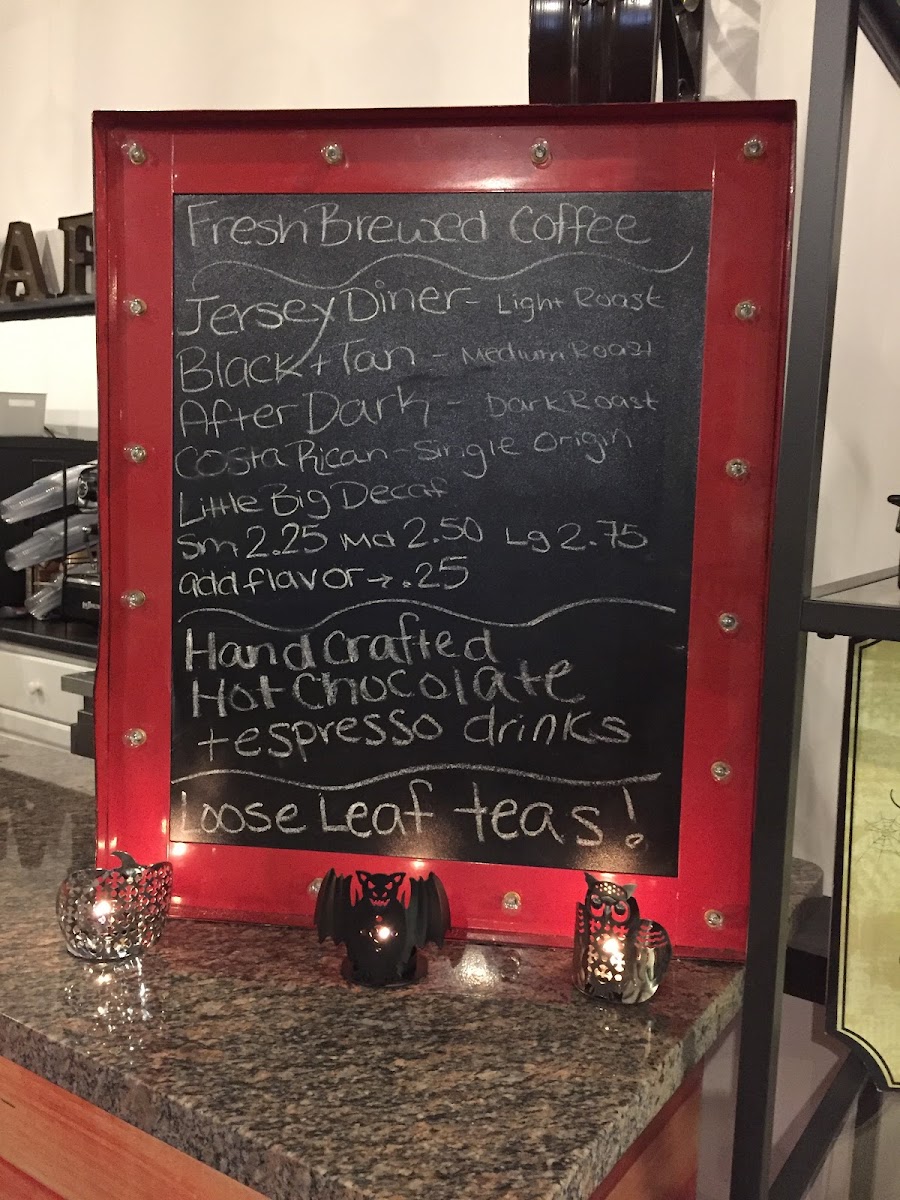 AF
Fresh Brewed Coffee
Jersey Diner - Light Roast
Black + Tan - Medium Roast
After Dark - Dark Roast
Costa Rican - Single Origin
Little Big Decaf
Sm 2.25 Md 2.50 Lg 2.75
add flavor → .25
Hand Crafted
Hot Chocolate
+ espresso drinks
Loose Leaf teas!